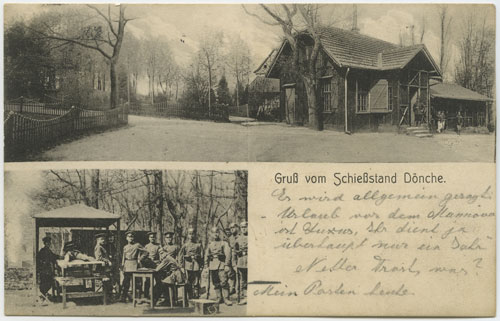 Gruß vom Schießstand Dönche.
Es wird allgemein gesagt
Urlaub vor dem
ist Luxus, Ihr dient ja
überhaupt nur ein Jahr
Netter Trost, was?
Mein